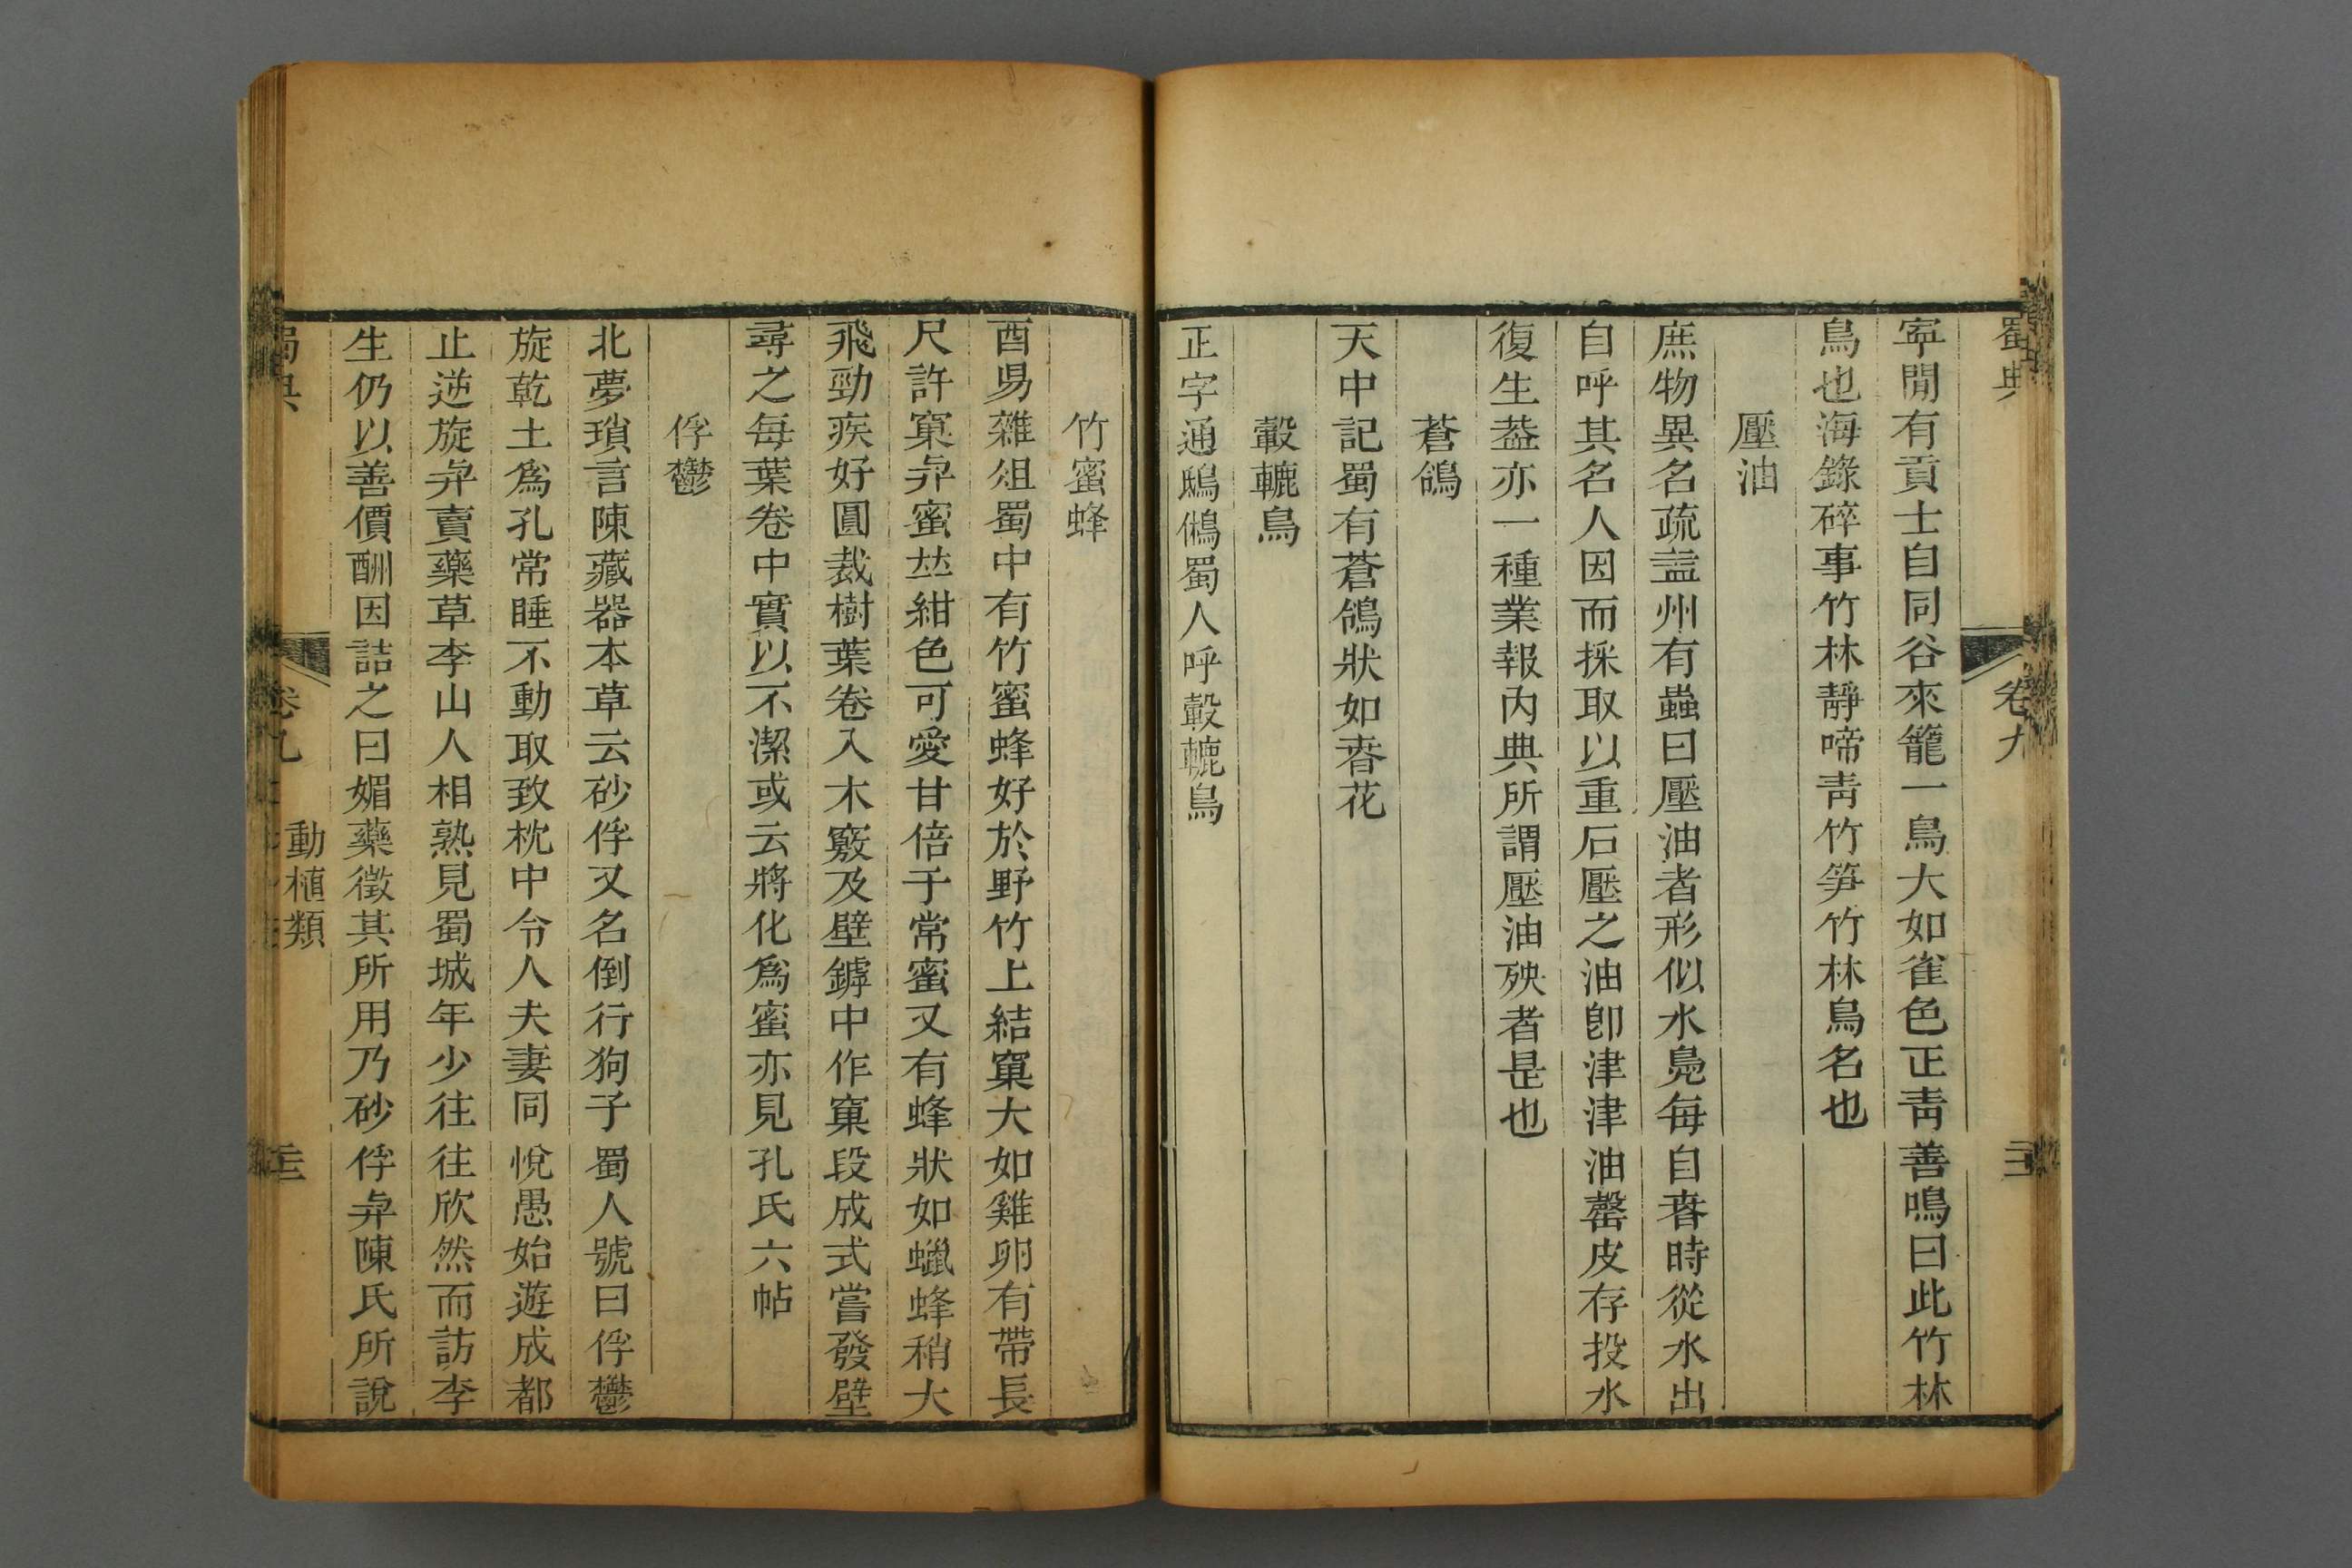 蜀典
卷九
寕閒有貢士自同谷來籠一鳥大如雀色正靑善鳴曰此竹林
鳥也海錄碎事竹林靜啼靑竹笋竹林鳥名也
壓油
庶物異名疏益州有蟲曰壓油者形似水鳧每自春時從水出
自呼其名人因而採取以重石壓之油卽津津油罄皮存投水
復生葢亦一種業報內典所謂壓油殃者是也
蒼鴿
天中記蜀有蒼鴿狀如春花
轂轆鳥
正字通鴟鵂蜀人呼轂轆鳥
竹蜜蜂
酉昜雜俎蜀中有竹蜜蜂好於野竹上結窠大如雞卵有帶長
尺許窠與蜜竝紺色可愛甘倍于常蜜又有蜂狀如蠟蜂稍大
飛勁疾好圓裁樹葉卷入木竅及壁罅中作窠段成式嘗發壁
尋之每葉卷中實以不潔或云將化爲蜜亦見孔氏六帖
俘鬱
北夢瑣言陳藏器本草云砂俘又名倒行狗子蜀人號曰俘鬱
旋乾土爲孔常睡不動取致枕中令人夫妻同悅愚始遊成都
止逆旋與賣藥草李山人相熟見蜀城年少往往欣然而訪李
生仍以善價酬因詰之曰媚藥徵其所用乃砂俘與陳氏所說
蜀典
卷九
動植類